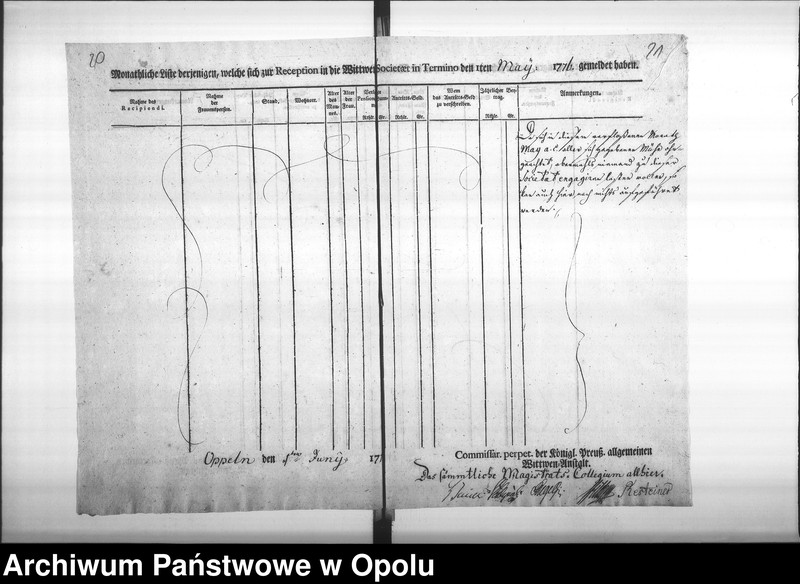 20
21
Monathliche Liste derjenigen, welche sich zur Reception in die Wittwe Societæt in Termino den 1ten May. 1776 gemeldet haben.
Nahme des Recipiendi.
Nahme der Frauenspersonen.
Stand.
Wohnort.
Alter des Mannes.
Alter der Frau.
Pension
Rthlr. Gr.
Antritts-Geld.
Rthlr. Gr.
Wem das Antritts-Geld zu verschreiben.
Jährlicher Beytrag.
Rthlr. Gr.
Anmerkungen.
Da sich in diesem verfloßenen Monath
May a. c. aller sich gegebener Mühe
niemand zu dieser
Societæt engagiren laßen wollen, so
hier noch nichts aufgeführet
werden
Oppeln den Juny 177
Commissar. perpet. der Königl. Preuß. allgemeinen
Wittwen-Anstalt.
Das sämmtliche Magistrats-Collegium allhier.
Archiwum Państwowe w Opolu